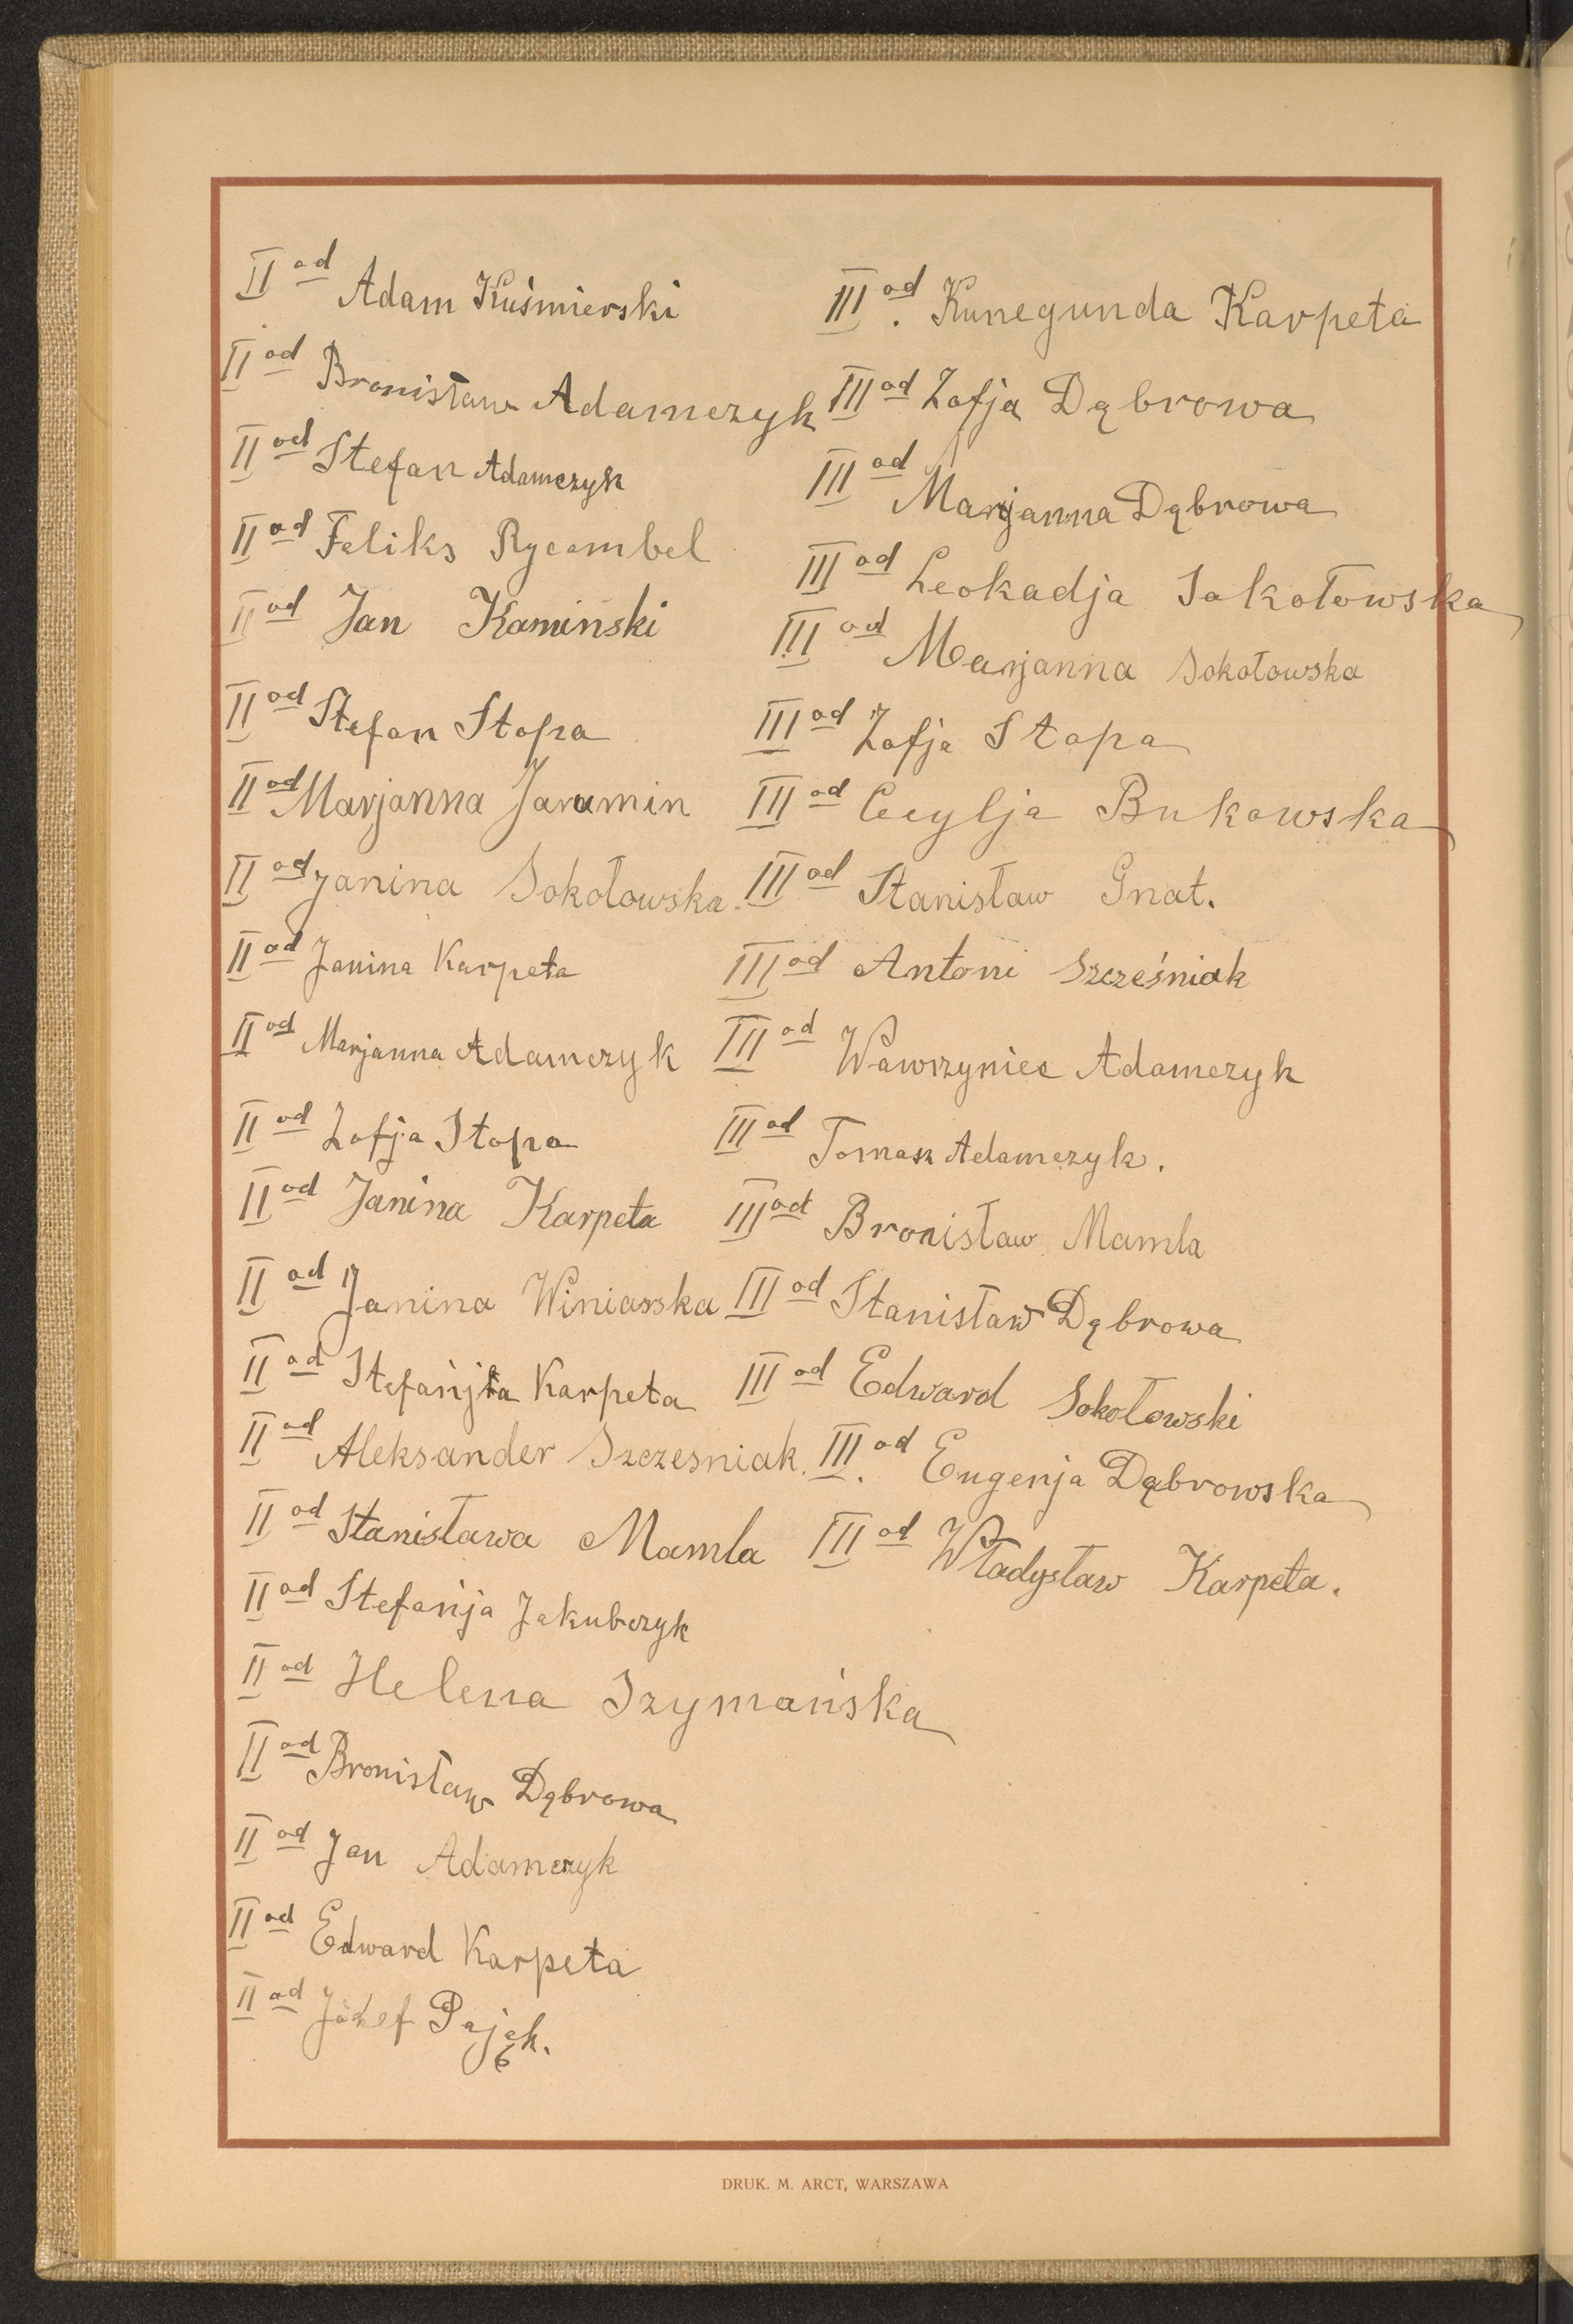 II od Adam Kuśmierski
II od Bronisław Adamczyk
II od Stefan Adamczyk
II od Feliks Rycombel
II od Jan Kamiński
II od Stefan Stopa
II od Marjanna Jaramin
II od Janina Sokołowska
II od Janina Karpeta
II od Marjanna Adamczyk
II od Zofja Stopa
II od Janina Karpeta
II od Janina Winiarska
II od Karpeta
II od Aleksander Szczesniak.
II od Stanisława Mamla
II od Stefanja Jakubczyk
II od Helena Szymańska
II od Bronisław Dąbrowa
II od Jan Adamczyk
II od Edward Karpeta
II od Józef Pająk.
III od. Kunegunda Karpeta
III od Zofja Dąbrowa
III od Marjanna Dąbrowa
III od Leokadja Sokołowska
III od Marjanna Sokołowska
III od Zofja Stopa
III od Cecylja Bukowska
III od Stanisław Gnat.
III od Antoni Szcześniak
III od Wawrzyniec Adamczyk
III od Tomasz Adamczyk.
III od Bronisław Mamla
III od Stanisław Dąbrowa
III od Edward Sokołowski
III. od Eugenja Dąbrowska
III od Władysław Karpeta.
DRUK. M. ARCT, WARSZAWA